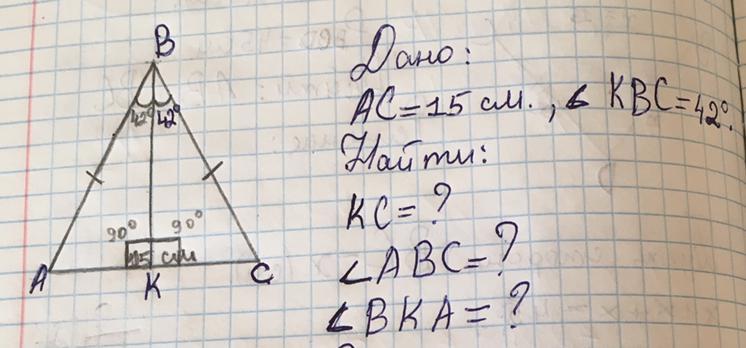 B
Дано:
42° 42°
AC=15 см. , ∠ KBC=42°.
Найти:
KC=?
90° 90°
15 см
∠ABC=?
A K C
∠BKA=?